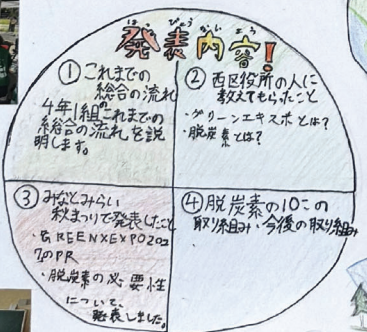 はっぴょうないよう
発表内容!
①これまでの
総合の流れ
4年1組のこれまでの
総合の流れを説
明します。
②西区役所の人に
教えてもらったこと
・グリーンエキスポとは?
・脱炭素とは?
③みなとみらい
秋まつりで発表したこと
・GREEN×EXPO202
7のPR
・脱炭素の必要性
について、
発表しました。
④脱炭素の10この
取り組み・今後の取り組み